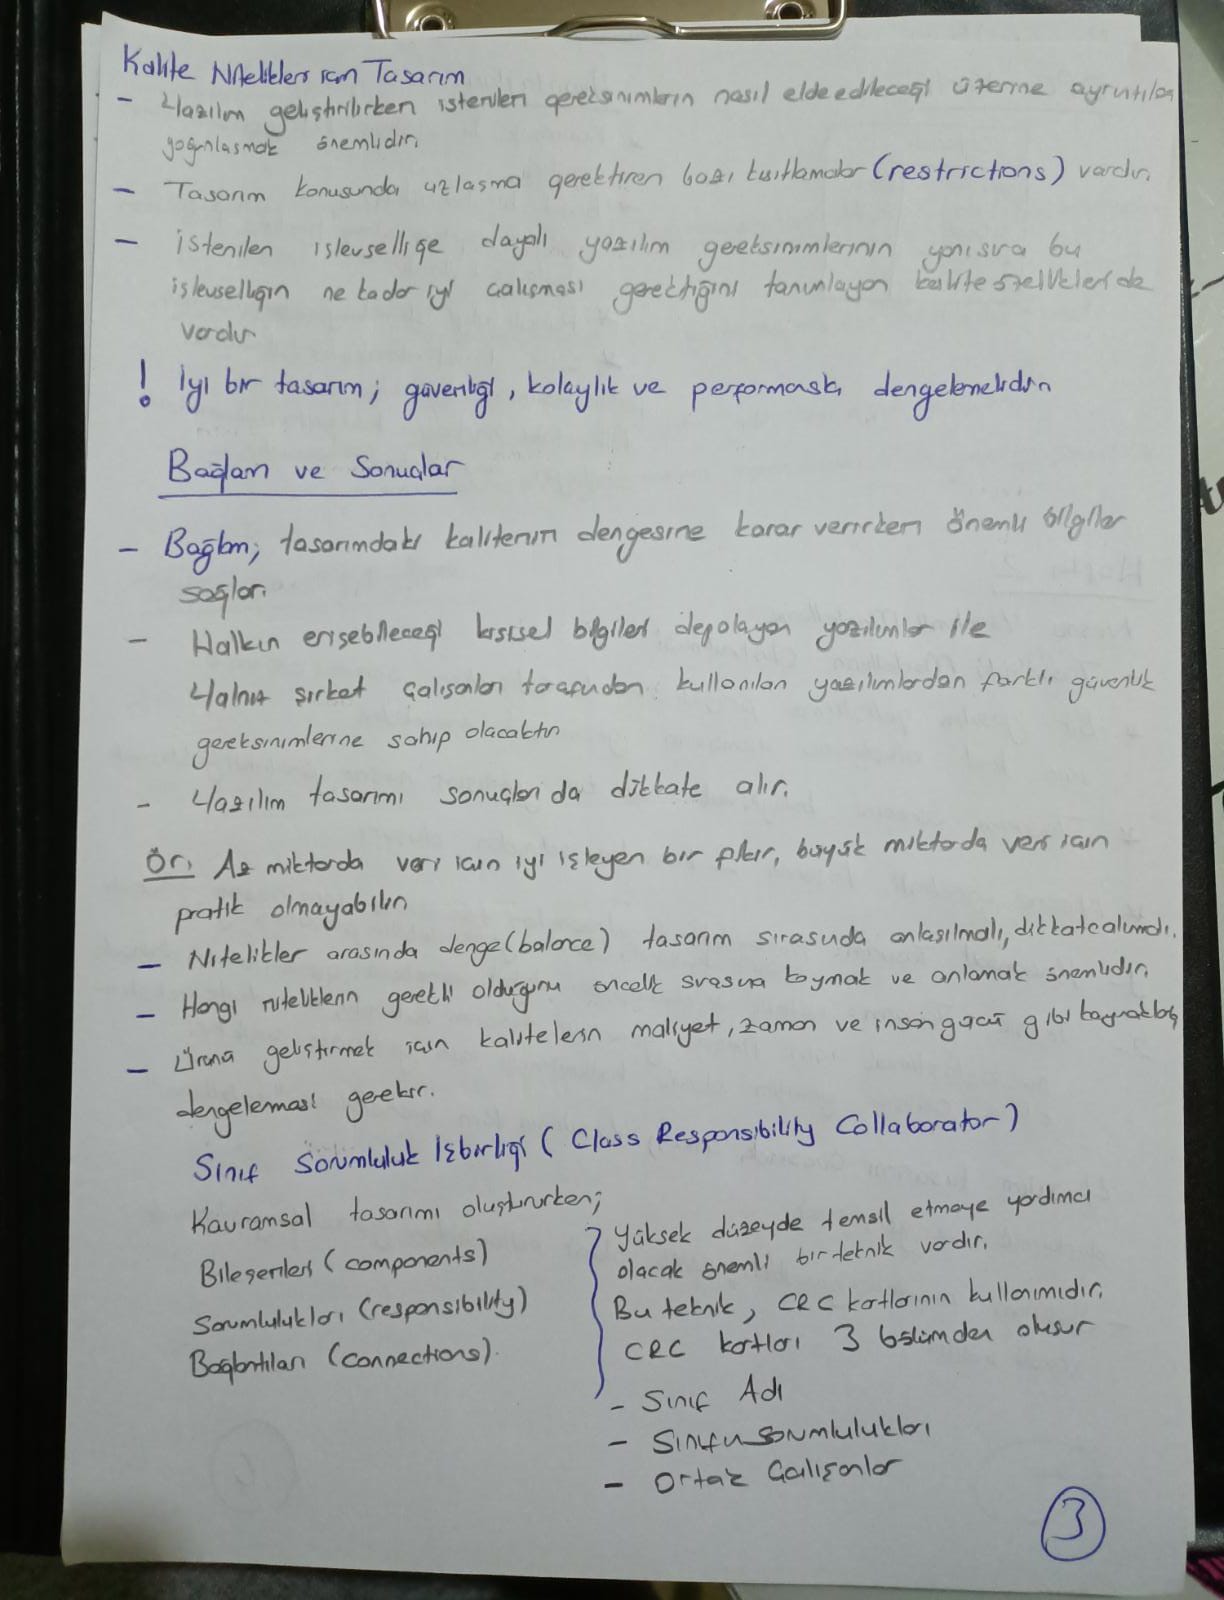 Kalite Nitelikleri için Tasarım
- Yazılım geliştirilirken istenilen gereksinimlerin nasıl elde edileceği üzerine ayrıntıları
yoğunlaşmak önemlidir.
- Tasarım konusunda uzlaşma gerektiren bazı kısıtlamalar (restrictions) vardır.
- İstenilen işlevselliğe dayalı yazılım gereksinimlerinin yanısıra bu
işlevselliğin ne kadar iyi çalışması gerektiğini tanımlayan kalite özellikleri de
vardır
! İyi bir tasarım; güvenliği, kolaylık ve performansla dengelemelidir
Bağlam ve Sonuçlar
- Bağlam; tasarımdaki kalitenin dengesine karar verirken önemli bilgiler
sağlar.
- Halkın erişebileceği kişisel bilgileri depolayan yazılımlar ile
Yalnız şirket çalışanları tarafından kullanılan yazılımlardan farklı güvenlik
gereksinimlerine sahip olacaktır
- Yazılım tasarımı sonuçları da dikkate alır.
Ör. Az miktarda veri için iyi işleyen bir fikir, büyük miktarda veri için
pratik olmayabilir
- Nitelikler arasında denge (balance) tasarım sırasında anlaşılmalı, dikkate alınmalı.
- Hangi niteliklerin gerekli olduğunu öncelik sırasına koymak ve anlamak önemlidir.
- Ürünü geliştirmek için kalitelerin maliyet, zaman ve insan gücü gibi kaynaklarla
dengelemesi gerekir.
Sınıf Sorumluluk İşbirliği (Class Responsibility Collaborator)
Kavramsal tasarımı oluştururken;
Bileşenleri (components)
Sorumlulukları (responsibility)
Bağlantıları (connections).
Yüksek düzeyde temsil etmeye yardımcı
olacak önemli bir teknik vardır.
Bu teknik, CRC kartlarının kullanımıdır.
CRC kartları 3 bölümden oluşur
- Sınıf Adı
- Sınıfın Sorumlulukları
- Ortak Çalışanlar
3